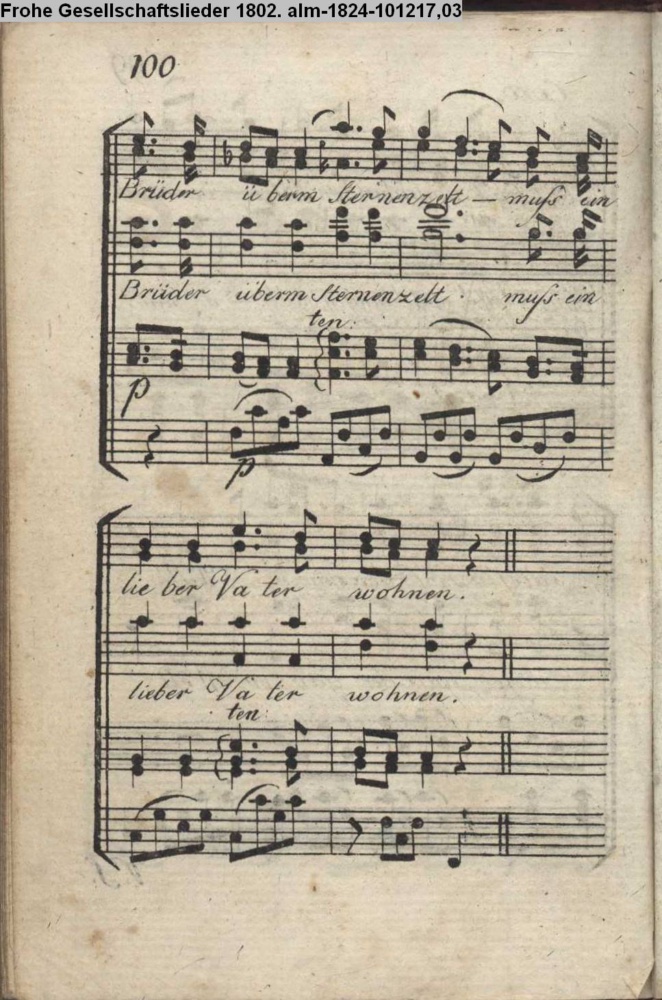 Frohe Gesellschaftslieder 1802. alm-1824-101217,03
100
Brüder ü berm Sternenzelt — muſs ein
Brüder überm Sternenzelt muſs ein
ten:
p
p
lie ber Va ter wohnen.
lieber Va ter wohnen.
ten